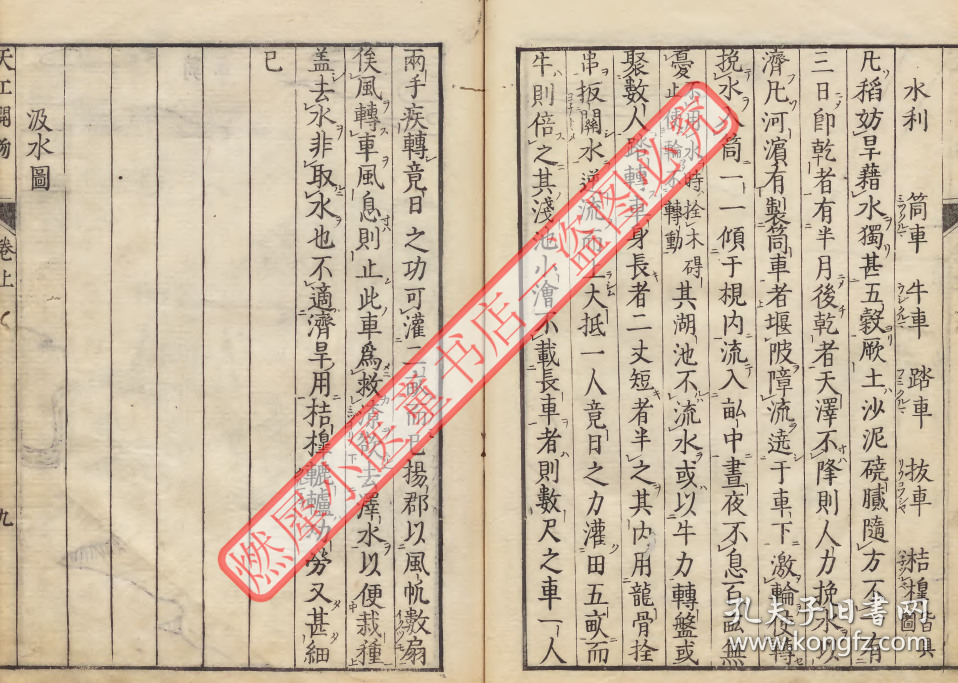 水利 筒車 牛車 踏車 拔車 桔槹 皆具圖
凡稻妨旱藉水獨甚五穀厥土沙泥磽膩隨方不一有
三日即乾者有半月後乾者天澤不降則人力挽水以
濟凡河濱有製筒車者堰陂障流遶于車下激輪使轉
挽水入筒一一傾于梘内流入畆中晝夜不息百畆無
憂不用水時拴木碍止使輪不轉動其湖池不流水或以牛力轉盤或
聚數人踏轉車身長者二丈短者半之其内用龍骨拴
串扳關水逆流而上大抵一人竟日之力灌田五畝而
牛則倍之其淺池小澮不載長車者則數尺之車一人
兩手疾轉竟日之功可灌二畝而已揚郡以風帆數扇
俟風轉車風息則止此車爲救潦欲去澤水以便栽種
盖去水非取水也不適濟旱用桔槹轆轤功勞又甚細
已
汲水圖
天工開物 卷上 九
燃犀小妖童书店—盗图必究
孔夫子旧书网
www.kongfz.com